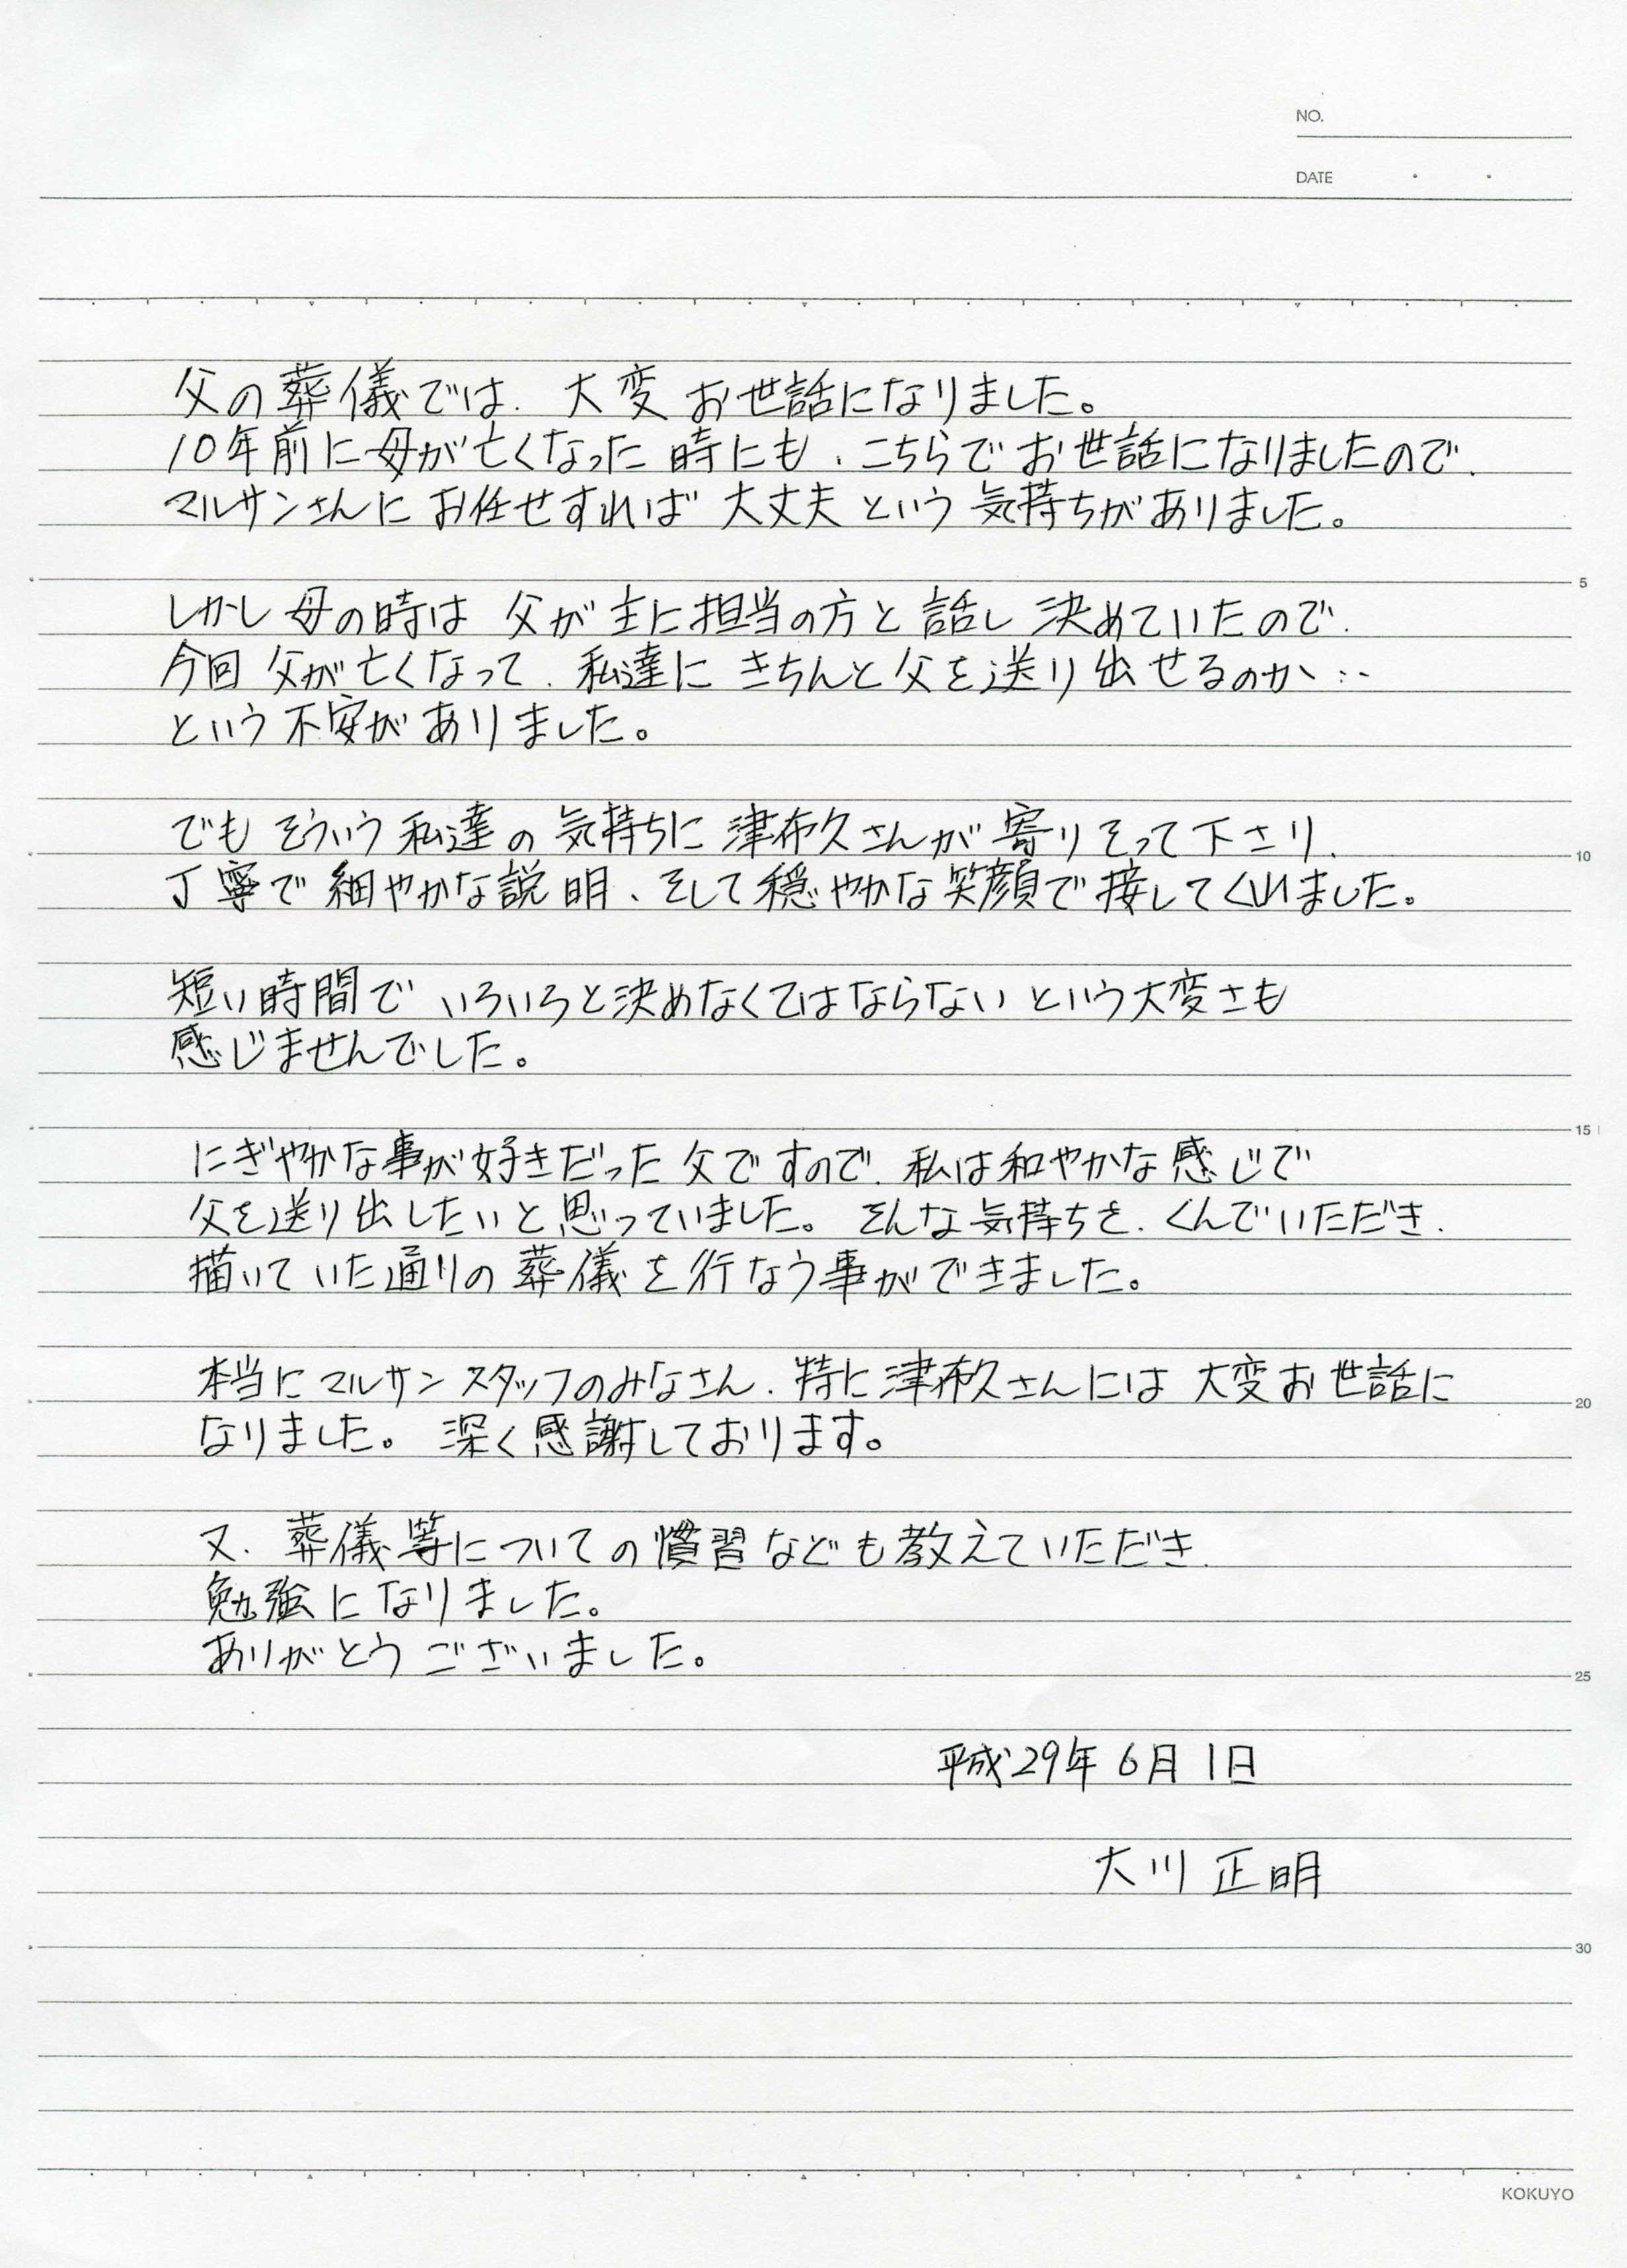 NO.
DATE
父の葬儀では、大変お世話になりました。
10年前に母が亡くなった時にも、こちらでお世話になりましたので、
マルサンさんにお任せすれば大丈夫という気持ちがありました。
5
しかし母の時は父が主に担当の方と話し決めていたので、
今回父が亡くなって、私達にきちんと父を送り出せるのか…
という不安がありました。
でもそういう私達の気持ちに津布久さんが寄りそって下さり、
10
丁寧で細やかな説明、そして穏やかな笑顔で接してくれました。
短い時間でいろいろと決めなくてはならないという大変さも
感じませんでした。
15
にぎやかな事が好きだった父ですので、私は和やかな感じで
父を送り出したいと思っていました。そんな気持ちを、くんでいただき、
描いていた通りの葬儀を行なう事ができました。
本当にマルサンスタッフのみなさん、特に津布久さんには大変お世話に
20
なりました。深く感謝しております。
又、葬儀等についての慣習なども教えていただき、
勉強になりました。
ありがとうございました。
25
平成29年6月1日
大川 正明
30
KOKUYO